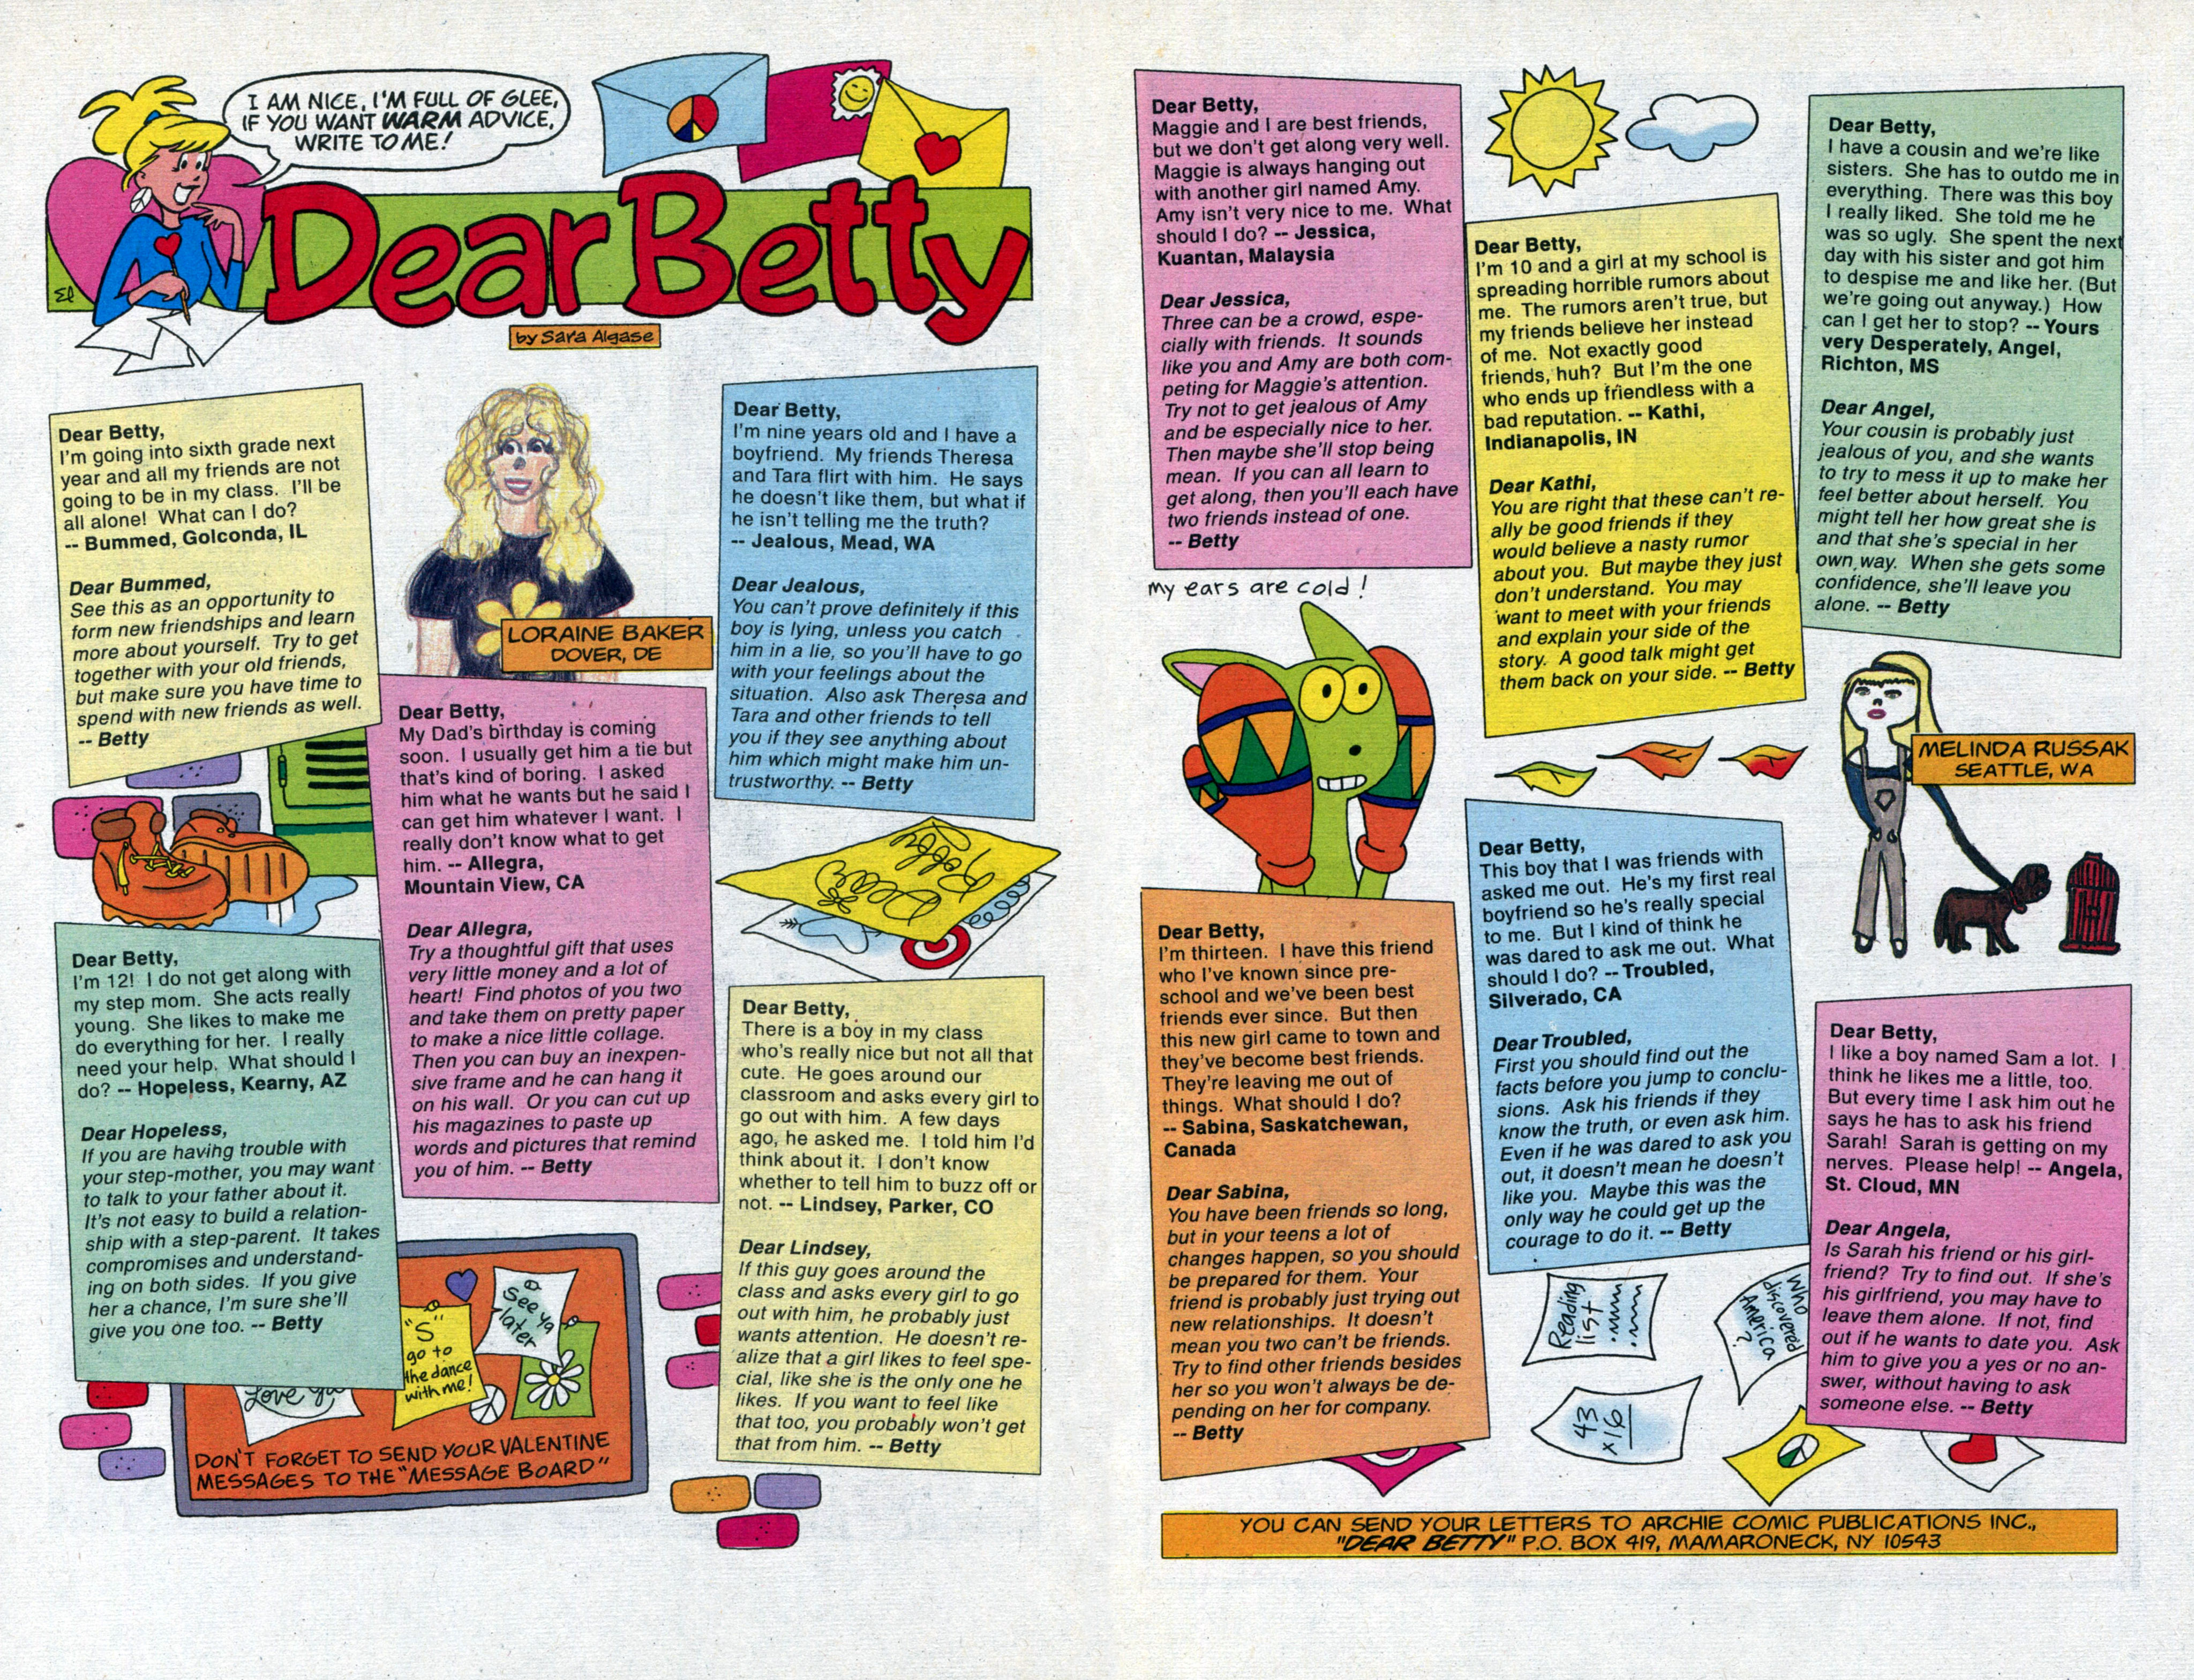 I AM NICE, I'M FULL OF GLEE,
IF YOU WANT WARM ADVICE,
WRITE TO ME!
Dear Betty
by Sara Algase
Dear Betty,
I'm going into sixth grade next
year and all my friends are not
going to be in my class. I'll be
all alone! What can I do?
-- Bummed, Golconda, IL
Dear Bummed,
See this as an opportunity to
form new friendships and learn
more about yourself. Try to get
together with your old friends,
but make sure you have time to
spend with new friends as well.
-- Betty
Dear Betty,
I'm 12! I do not get along with
my step mom. She acts really
young. She likes to make me
do everything for her. I really
need your help. What should I
do? -- Hopeless, Kearny, AZ
Dear Hopeless,
If you are having trouble with
your step-mother, you may want
to talk to your father about it.
It's not easy to build a relation-
ship with a step-parent. It takes
compromises and understand-
ing on both sides. If you give
her a chance, I'm sure she'll
give you one too. -- Betty
LORAINE BAKER
DOVER, DE
Dear Betty,
My Dad's birthday is coming
soon. I usually get him a tie but
that's kind of boring. I asked
him what he wants but he said I
can get him whatever I want. I
really don't know what to get
him. -- Allegra,
Mountain View, CA
Dear Allegra,
Try a thoughtful gift that uses
very little money and a lot of
heart! Find photos of you two
and take them on pretty paper
to make a nice little collage.
Then you can buy an inexpen-
sive frame and he can hang it
on his wall. Or you can cut up
his magazines to paste up
words and pictures that remind
you of him. -- Betty
Love Ya
"S"
go to
the dance
with me!
See ya
later
DON'T FORGET TO SEND YOUR VALENTINE
MESSAGES TO THE "MESSAGE BOARD"
Dear Betty,
I'm nine years old and I have a
boyfriend. My friends Theresa
and Tara flirt with him. He says
he doesn't like them, but what if
he isn't telling me the truth?
-- Jealous, Mead, WA
Dear Jealous,
You can't prove definitely if this
boy is lying, unless you catch
him in a lie, so you'll have to go
with your feelings about the
situation. Also ask Theresa and
Tara and other friends to tell
you if they see anything about
him which might make him un-
trustworthy. -- Betty
Dear Betty,
There is a boy in my class
who's really nice but not all that
cute. He goes around our
classroom and asks every girl to
go out with him. A few days
ago, he asked me. I told him I'd
think about it. I don't know
whether to tell him to buzz off or
not. -- Lindsey, Parker, CO
Dear Lindsey,
If this guy goes around the
class and asks every girl to go
out with him, he probably just
wants attention. He doesn't re-
alize that a girl likes to feel spe-
cial, like she is the only one he
likes. If you want to feel like
that too, you probably won't get
that from him. -- Betty
Dear Betty,
Maggie and I are best friends,
but we don't get along very well.
Maggie is always hanging out
with another girl named Amy.
Amy isn't very nice to me. What
should I do? -- Jessica,
Kuantan, Malaysia
Dear Jessica,
Three can be a crowd, espe-
cially with friends. It sounds
like you and Amy are both com-
peting for Maggie's attention.
Try not to get jealous of Amy
and be especially nice to her.
Then maybe she'll stop being
mean. If you can all learn to
get along, then you'll each have
two friends instead of one.
-- Betty
my ears are cold!
Dear Betty,
I'm thirteen. I have this friend
who I've known since pre-
school and we've been best
friends ever since. But then
this new girl came to town and
they've become best friends.
They're leaving me out of
things. What should I do?
-- Sabina, Saskatchewan,
Canada
Dear Sabina,
You have been friends so long,
but in your teens a lot of
changes happen, so you should
be prepared for them. Your
friend is probably just trying out
new relationships. It doesn't
mean you two can't be friends.
Try to find other friends besides
her so you won't always be de-
pending on her for company.
-- Betty
Dear Betty,
I'm 10 and a girl at my school is
spreading horrible rumors about
me. The rumors aren't true, but
my friends believe her instead
of me. Not exactly good
friends, huh? But I'm the one
who ends up friendless with a
bad reputation. -- Kathi,
Indianapolis, IN
Dear Kathi,
You are right that these can't re-
ally be good friends if they
would believe a nasty rumor
about you. But maybe they just
don't understand. You may
want to meet with your friends
and explain your side of the
story. A good talk might get
them back on your side. -- Betty
Dear Betty,
This boy that I was friends with
asked me out. He's my first real
boyfriend so he's really special
to me. But I kind of think he
was dared to ask me out. What
should I do? -- Troubled,
Silverado, CA
Dear Troubled,
First you should find out the
facts before you jump to conclu-
sions. Ask his friends if they
know the truth, or even ask him.
Even if he was dared to ask you
out, it doesn't mean he doesn't
like you. Maybe this was the
only way he could get up the
courage to do it. -- Betty
Reading
list
Who
discovered
America
?
43
x16
Dear Betty,
I have a cousin and we're like
sisters. She has to outdo me in
everything. There was this boy
I really liked. She told me he
was so ugly. She spent the next
day with his sister and got him
to despise me and like her. (But
we're going out anyway.) How
can I get her to stop? -- Yours
very Desperately, Angel,
Richton, MS
Dear Angel,
Your cousin is probably just
jealous of you, and she wants
to try to mess it up to make her
feel better about herself. You
might tell her how great she is
and that she's special in her
own way. When she gets some
confidence, she'll leave you
alone. -- Betty
MELINDA RUSSAK
SEATTLE, WA
Dear Betty,
I like a boy named Sam a lot. I
think he likes me a little, too.
But every time I ask him out he
says he has to ask his friend
Sarah! Sarah is getting on my
nerves. Please help! -- Angela,
St. Cloud, MN
Dear Angela,
Is Sarah his friend or his girl-
friend? Try to find out. If she's
his girlfriend, you may have to
leave them alone. If not, find
out if he wants to date you. Ask
him to give you a yes or no an-
swer, without having to ask
someone else. -- Betty
YOU CAN SEND YOUR LETTERS TO ARCHIE COMIC PUBLICATIONS INC.,
"DEAR BETTY" P.O. BOX 419, MAMARONECK, NY 10543